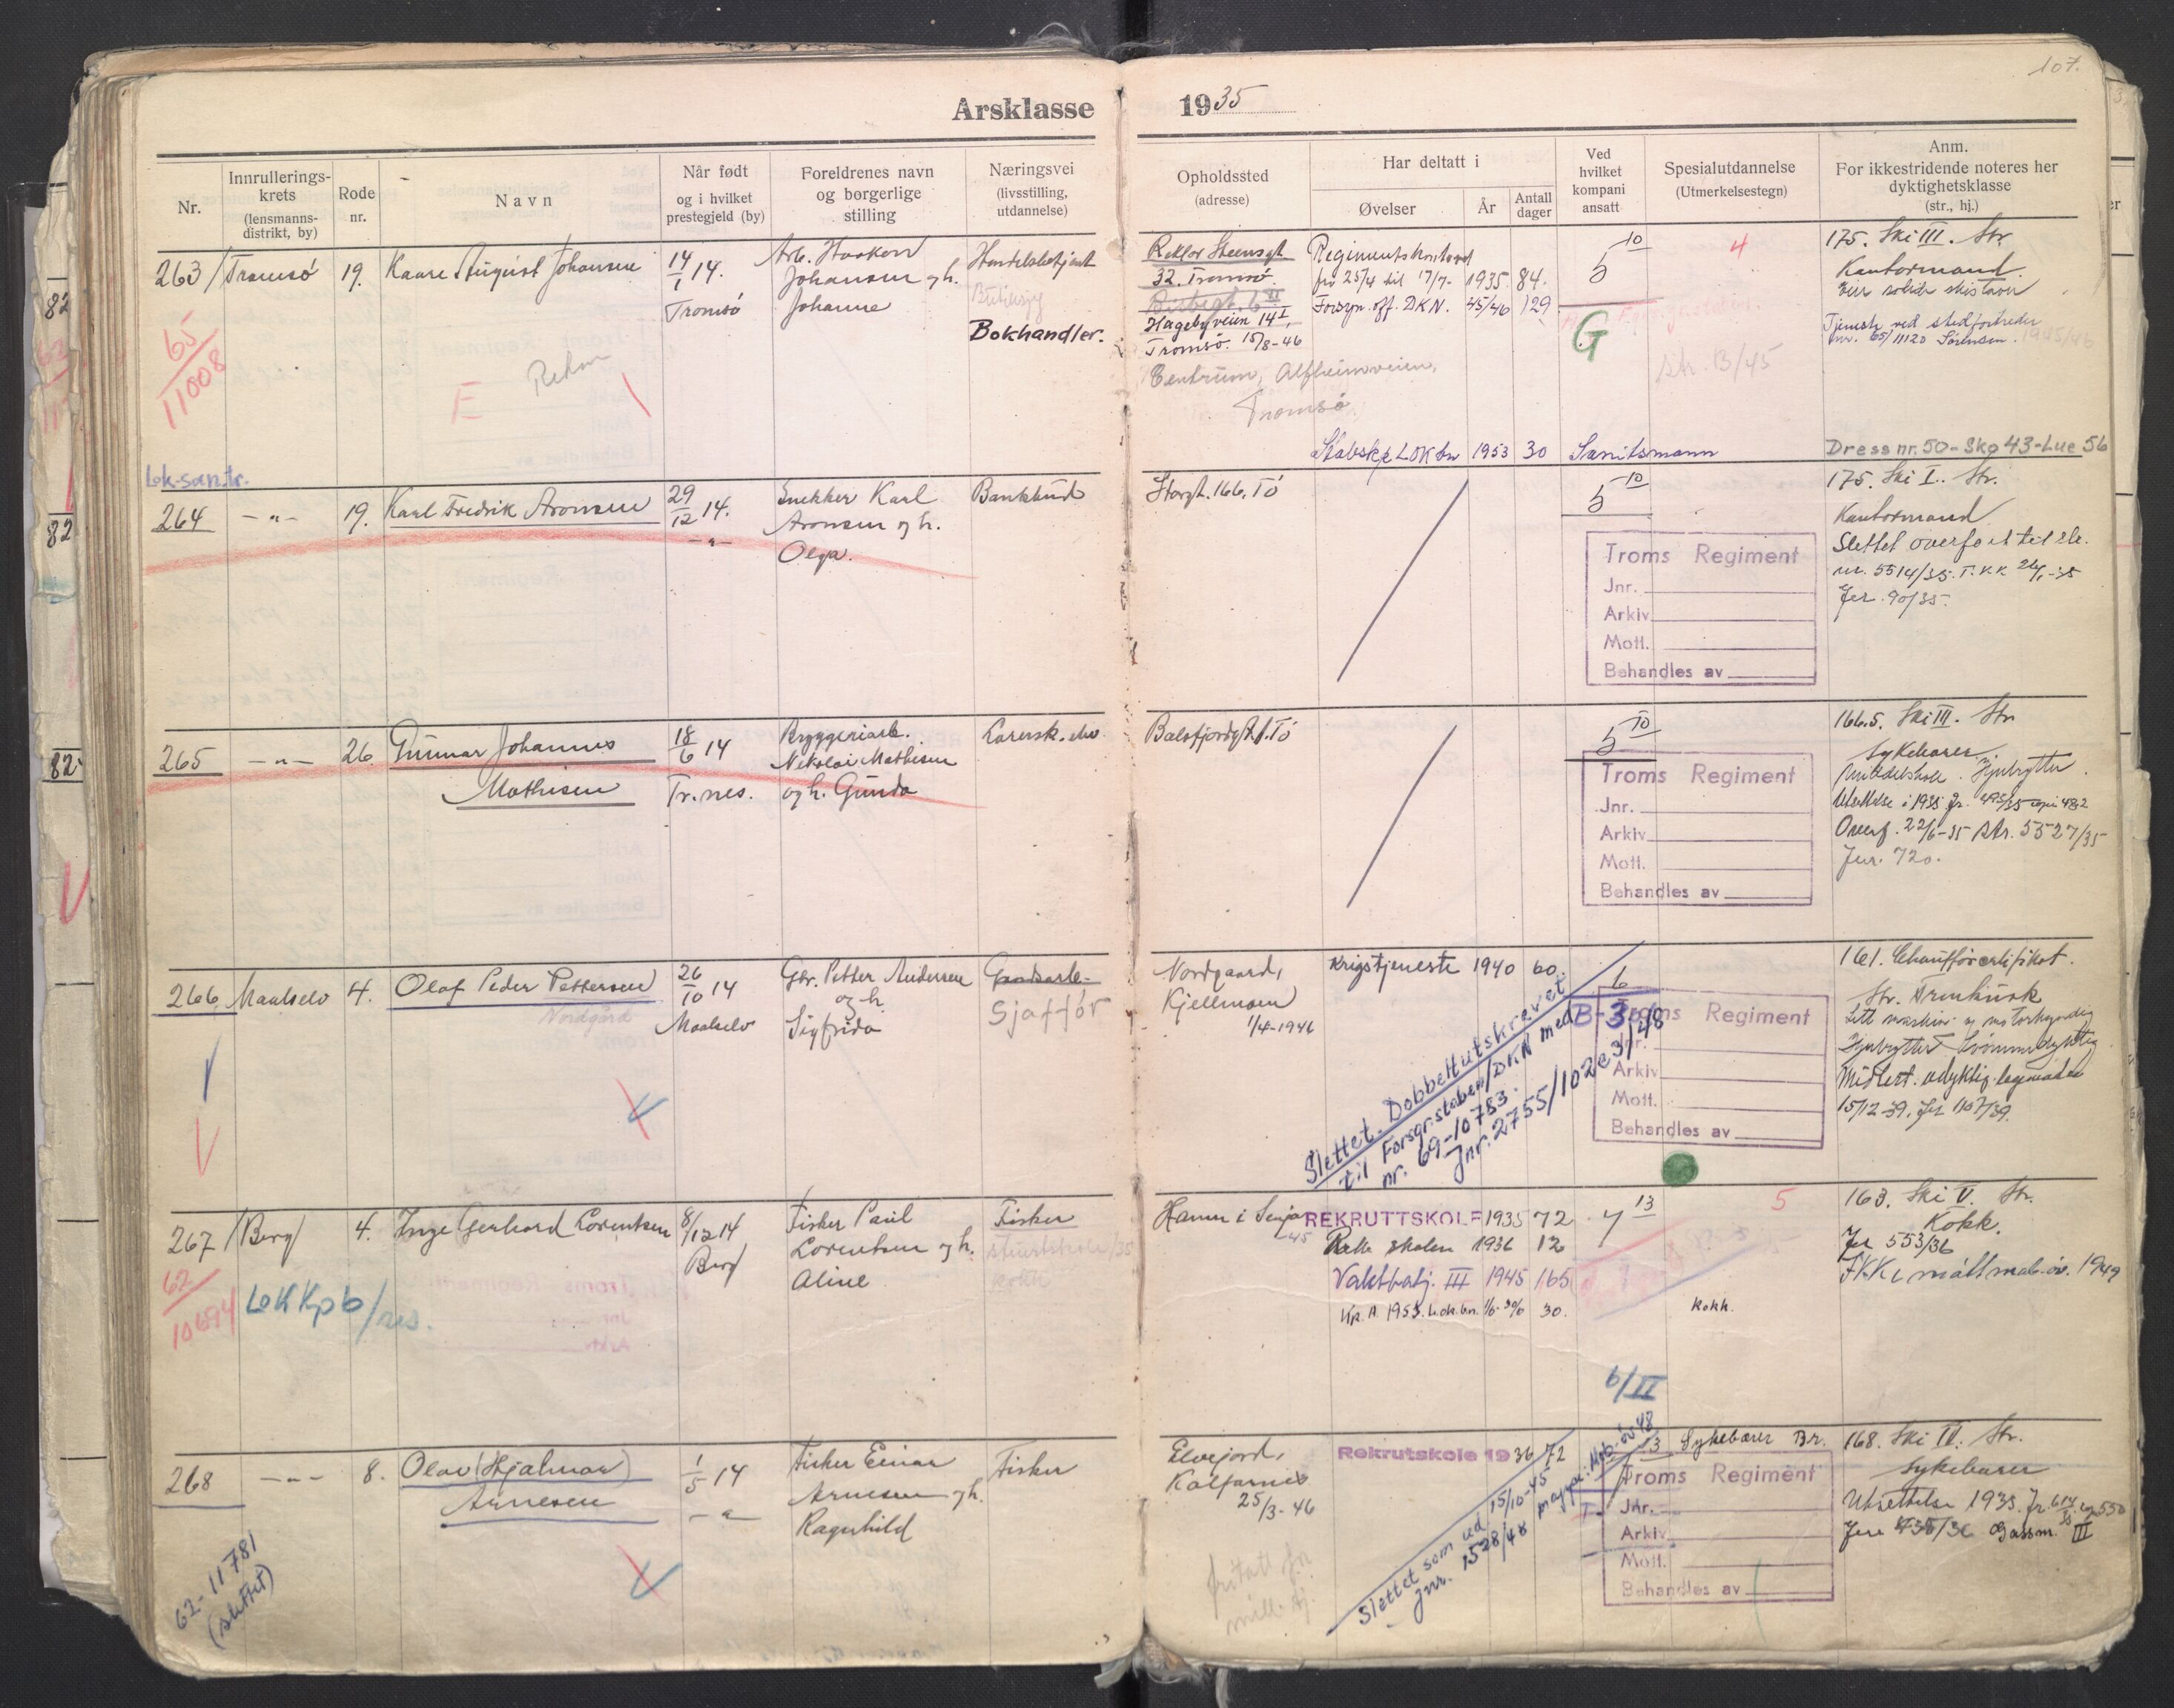 107.
Årsklasse 1935
Nr.
Innrullerings-
krets
(lensmanns-
distrikt, by)
Rode
nr.
Navn
Når født
og i hvilket
prestegjeld (by)
Foreldrenes navn
og borgerlige
stilling
Næringsvei
(livsstilling,
utdannelse)
Opholdssted
(adresse)
Har deltatt i
Øvelser
År
Antall
dager
Ved
hvilket
kompani
ansatt
Spesialutdannelse
(Utmerkelsestegn)
Anm.
For ikkestridende noteres her
dyktighetsklasse
(str., hj.)
263 / Tromsö 19. Kaare August Johansen 14/1 14. Tromsö
Arb. Haakon
Johansen og h.
Johanne
Handelsbetjent
Bokhandler.
65/11008
E
Rektor Steensgt.
32. Tromsö
Hagebyveien 14 I,
Tromsö. 15/8-46
Centrum, Alfheimveien,
Tromsö
fra 25/4 til 17/7- 1935 84.
Forsyn. off. DKN. 45/46 129
Stabskp LOK bn 1953 30 Sanitsmann
10
5
G
4
Str. B/45
175. Ski III. Str.
Kontormand.
Tjenste ved stedfortreder
nr. 65/11120 Sörensen. 1945/46
Dress nr. 50 - Sko 43 - Lue 56
Lok. san. tr.
264 -"- 19. Karl Fredrik Aronsen 29/12 14. -"-
Snekker Karl
Aronsen og h.
Olga.
Storgt. 166. Tö
10
5
Troms Regiment
Jnr.
Arkiv
Mott.
Behandles av
175. Ski I. Str.
Kontormand
Slettet overført til rle.
nr. 5514/35. T.K.K.
Jnr. 90/35.
265 -"- 26. Gunnar Johannes
Mathisen
18/6 14
Tr.nes.
Bryggeriarb.
Nikolai Mathisen
og h. Gunda
Lærersk. elev.
10
5
Troms Regiment
Jnr.
Arkiv
Mott.
Behandles av
166.5. Ski III. Str.
Sykebærer.
Middelskole.
Overf. 22/6-35 Str. 5527/35
Jnr. 720.
266. Maalselv 4. Olaf Peder Pettersen
Nordgård
26/10 14
Maalselv
Gbr. Petter Andersen
og h.
Sigfrida
Gaardsarb.
Sjaffør
Nordgaard,
Kjellmoen
1/4-1946
Krigstjeneste 1940 60.
6
B-3
Slettet. Dobbeltutskrevet
til Forsgr.staben/DKN med
nr. 69-10783.
Jnr. 2755/102e 31/1/8
Troms Regiment
Jnr.
Arkiv
Mott.
Behandles av
161. Chaufförcertifikat.
Str.
Midlert. udyktig
15/12-39. Jnr 1107/39.
267 / Berg 4. Inge Gerhard Lorentsen 8/12 14
Berg
Fisker Paul
Lorentsen og h.
Aline
Fisker
stuertskole/35
kokk
62/10694
Lok Kp 6/res.
Hamn i Senja
45
REKRUTTSKOLE 1935 72
Rekr. skolen 1936 12
Vaktbatj. III 1945 165
Kp. A. 1953. Lok.bn. 1/6-30/6 30.
13
4
5
Kokk.
163. Ski V. Str.
Kokk.
Jnr 553/36
1949
6/II
268 -"- 8. Olav (Hjalmar)
Arnesen
1/5 14
-"-
Fisker Einar
Arnesen og h.
Ragnhild
Fisker
62-11781
(slettet)
Elvejord,
Kalfarnes
25/3-46
fritatt for
mil. tj.
Rekrutskole 1936 72
Slettet som ud. 15/10-45
Jnr. 1528/48
13
Sykebærer Br.
Troms Regiment
Jnr.
Arkiv
Mott.
Behandles av
168. Ski IV. Str.
Sykebærer
Utsettelse 1935.
Jnr 438/36 Gassm. III